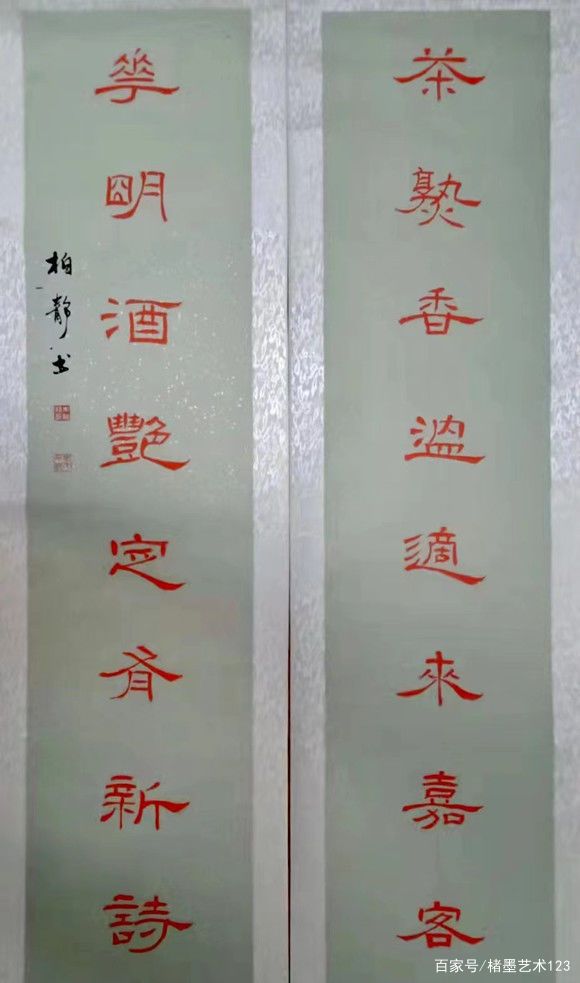 茶熟香溫適來嘉客
華明酒艷定有新詩
柏靜书
百家号/楮墨艺术123